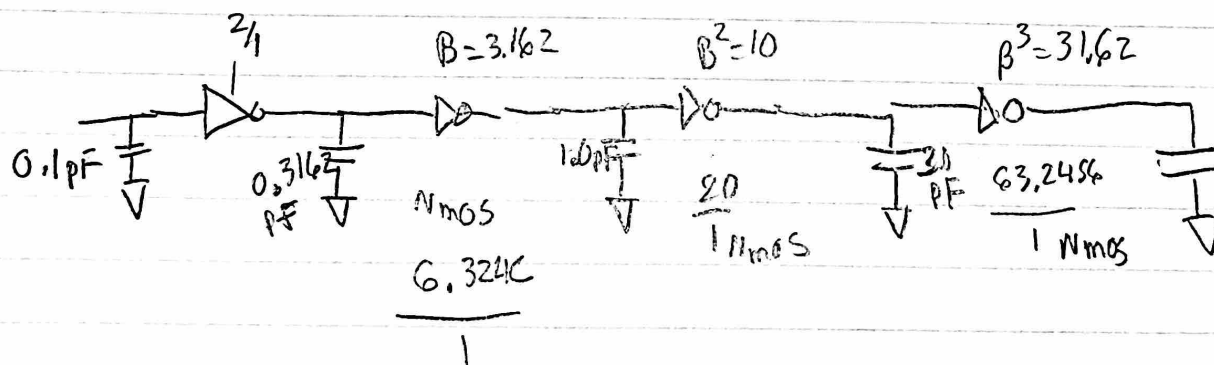 2/1
B=3.162
β²=10
β³=31.62
0.1pF
0.3162
pF
Nmos
6.324
1
1.0pF
20
1 Nmos
pF
63.2456
1 Nmos